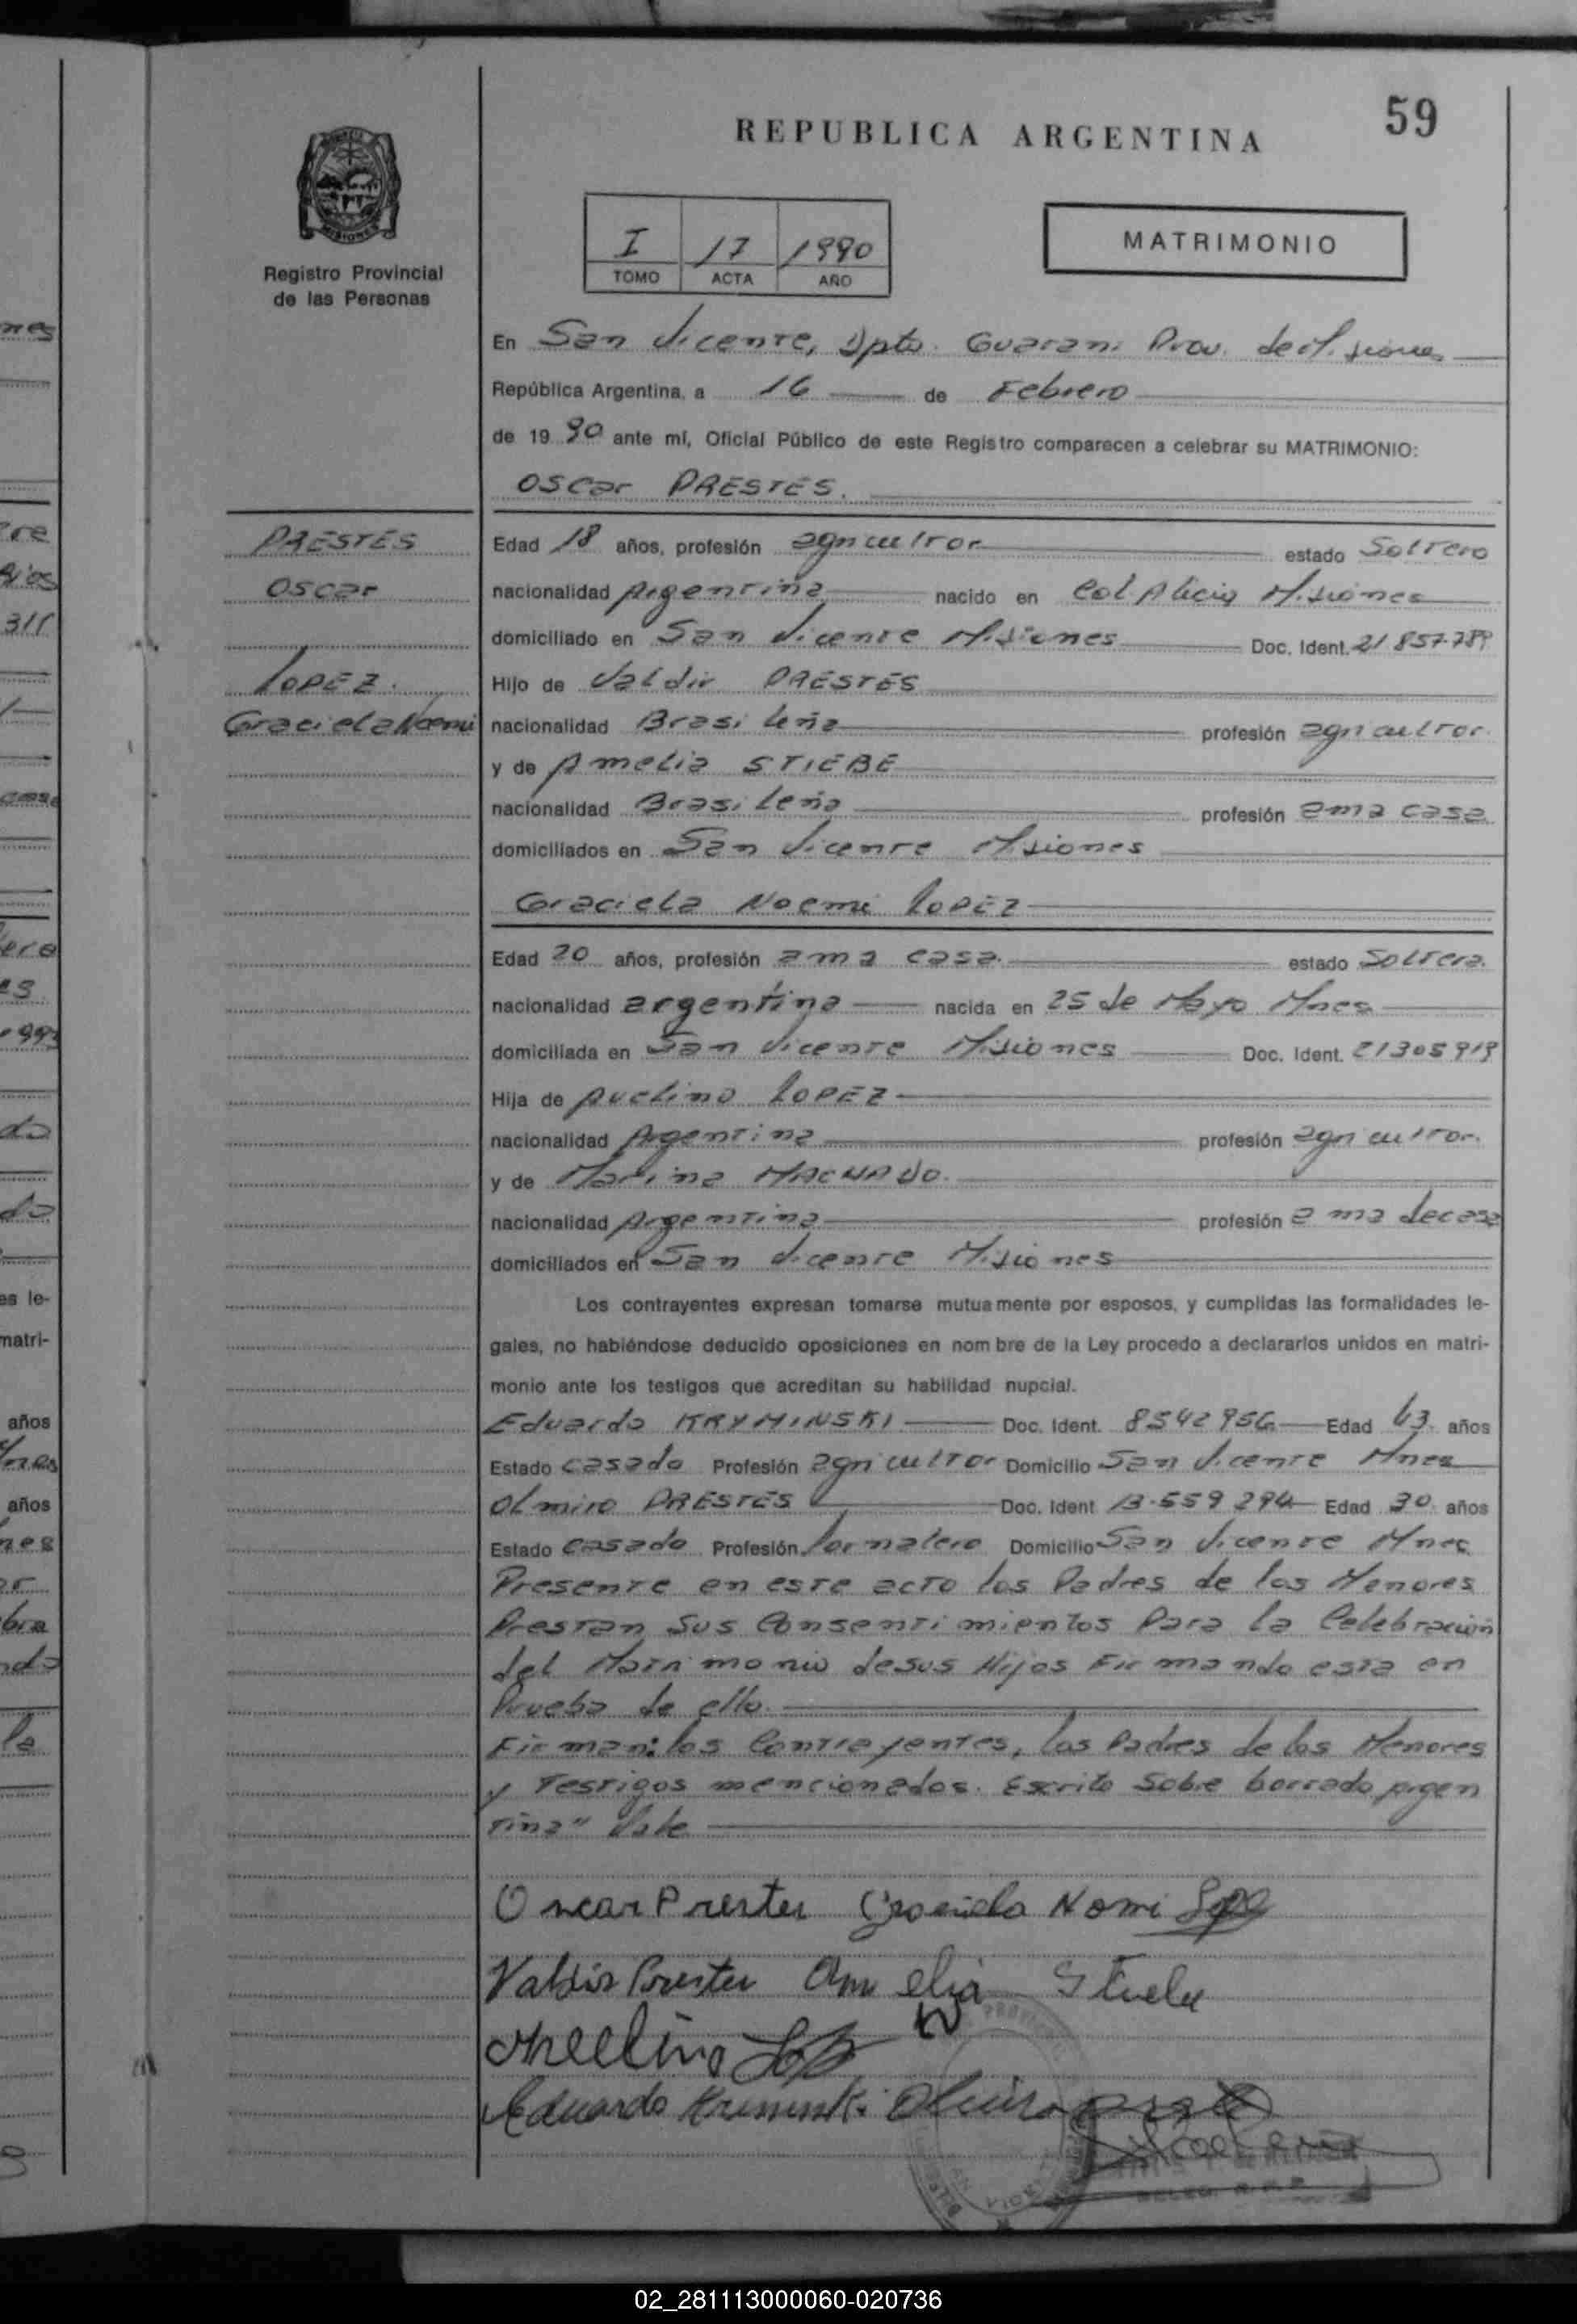 59
REPUBLICA ARGENTINA
MISIONES
Registro Provincial
de las Personas
I 17 1990
TOMO ACTA AÑO
MATRIMONIO
En San Vicente, Dpto. Guarani Prov. de Misiones
República Argentina, a 16 de Febrero
de 19 90 ante mí, Oficial Público de este Registro comparecen a celebrar su MATRIMONIO:
Oscar PRESTES.
PRESTES
Oscar
LOPEZ.
Graciela Noemi
Edad 18 años, profesión agricultor estado Soltero
nacionalidad Argentina nacido en Col. Alicia Misiones
domiciliado en San Vicente Misiones Doc. Ident. 21 857.789
Hijo de Valdir PRESTES
nacionalidad Brasileña profesión agricultor.
y de Amelia STIEBE
nacionalidad Brasileña profesión ama casa
domiciliados en San Vicente Misiones
Graciela Noemi LOPEZ
Edad 20 años, profesión ama casa. estado Soltera.
nacionalidad argentina nacida en 25 de Mayo Mnes
domiciliada en San Vicente Misiones Doc. Ident. 21305919
Hija de Avelino LOPEZ
nacionalidad Argentina profesión agricultor.
y de Marina MACHADO.
nacionalidad Argentina profesión ama decasa
domiciliados en San Vicente Misiones
Los contrayentes expresan tomarse mutuamente por esposos, y cumplidas las formalidades le-
gales, no habiéndose deducido oposiciones en nom bre de la Ley procedo a declararlos unidos en matri-
monio ante los testigos que acreditan su habilidad nupcial.
Eduardo KRYMINSKI Doc. Ident. 8542956 Edad 43 años
Estado casado Profesión agricultor Domicilio San Vicente Mnes
Olmiro PRESTES Doc. Ident 13.559 294 Edad 30 años
Estado casado Profesión Jornalero Domicilio San Vicente Mnes
Presente en este acto los Padres de los Menores
Prestan Sus Consentimientos Para la Celebración
del Matrimonio desus Hijos Firmando esta en
Prueba de ello.
Firman: los Contrayentes, los Padres de los Menores
y Testigos mencionados. Escrito Sobre borrado Argen
tina" Vale
Oscar Prestes Graciela Nomi Lopez
Valdir Prestes Amelia
Avellino Lopez
Eduardo
02_281113000060-020736